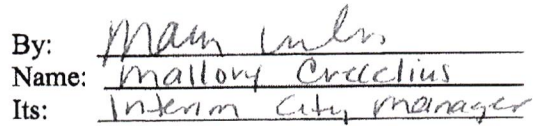 By:
Name: Mallory Crecelius
Its: Interim City Manager